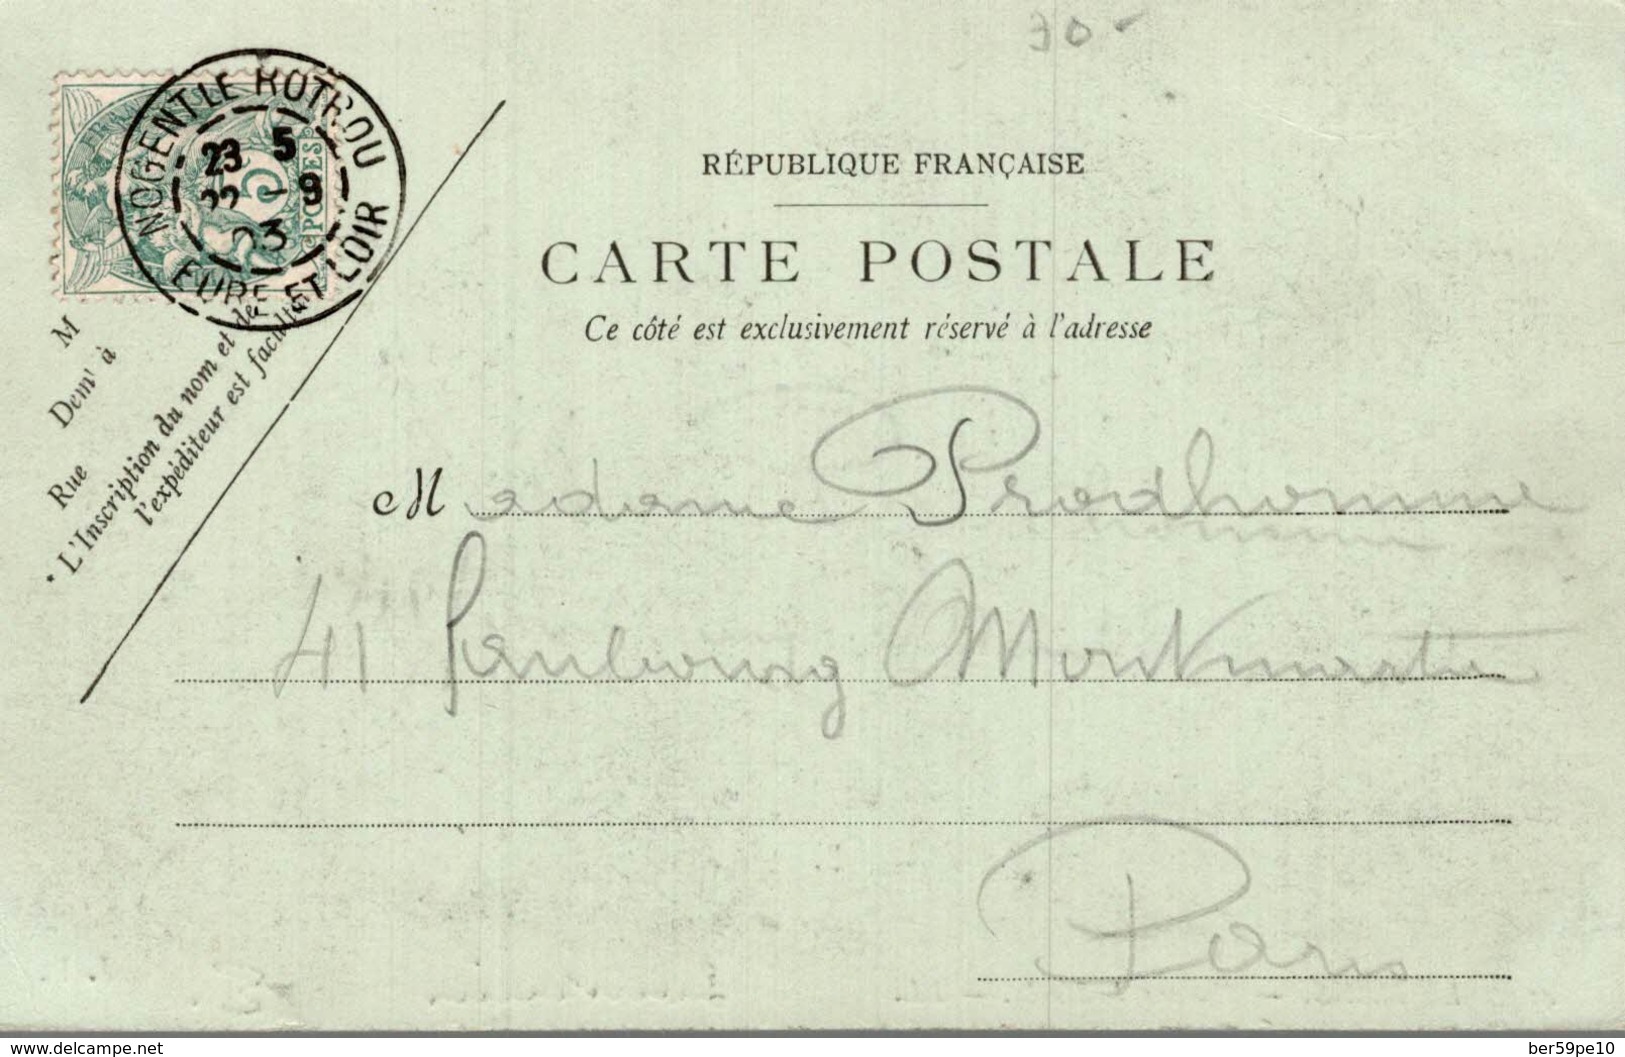 30-
NOGENT LE ROTROU
23 5
22 -9
03
EURE ET LOIR
5
POSTES
RÉPUBLIQUE FRANÇAISE
CARTE POSTALE
Ce côté est exclusivement réservé à l'adresse
M
Demt à
Rue
* L'Inscription du nom et de
l'expéditeur est facultat
Madame Prodhomme
41 Faubourg Montmartre
Paris
www.delcampe.net
ber59pe10